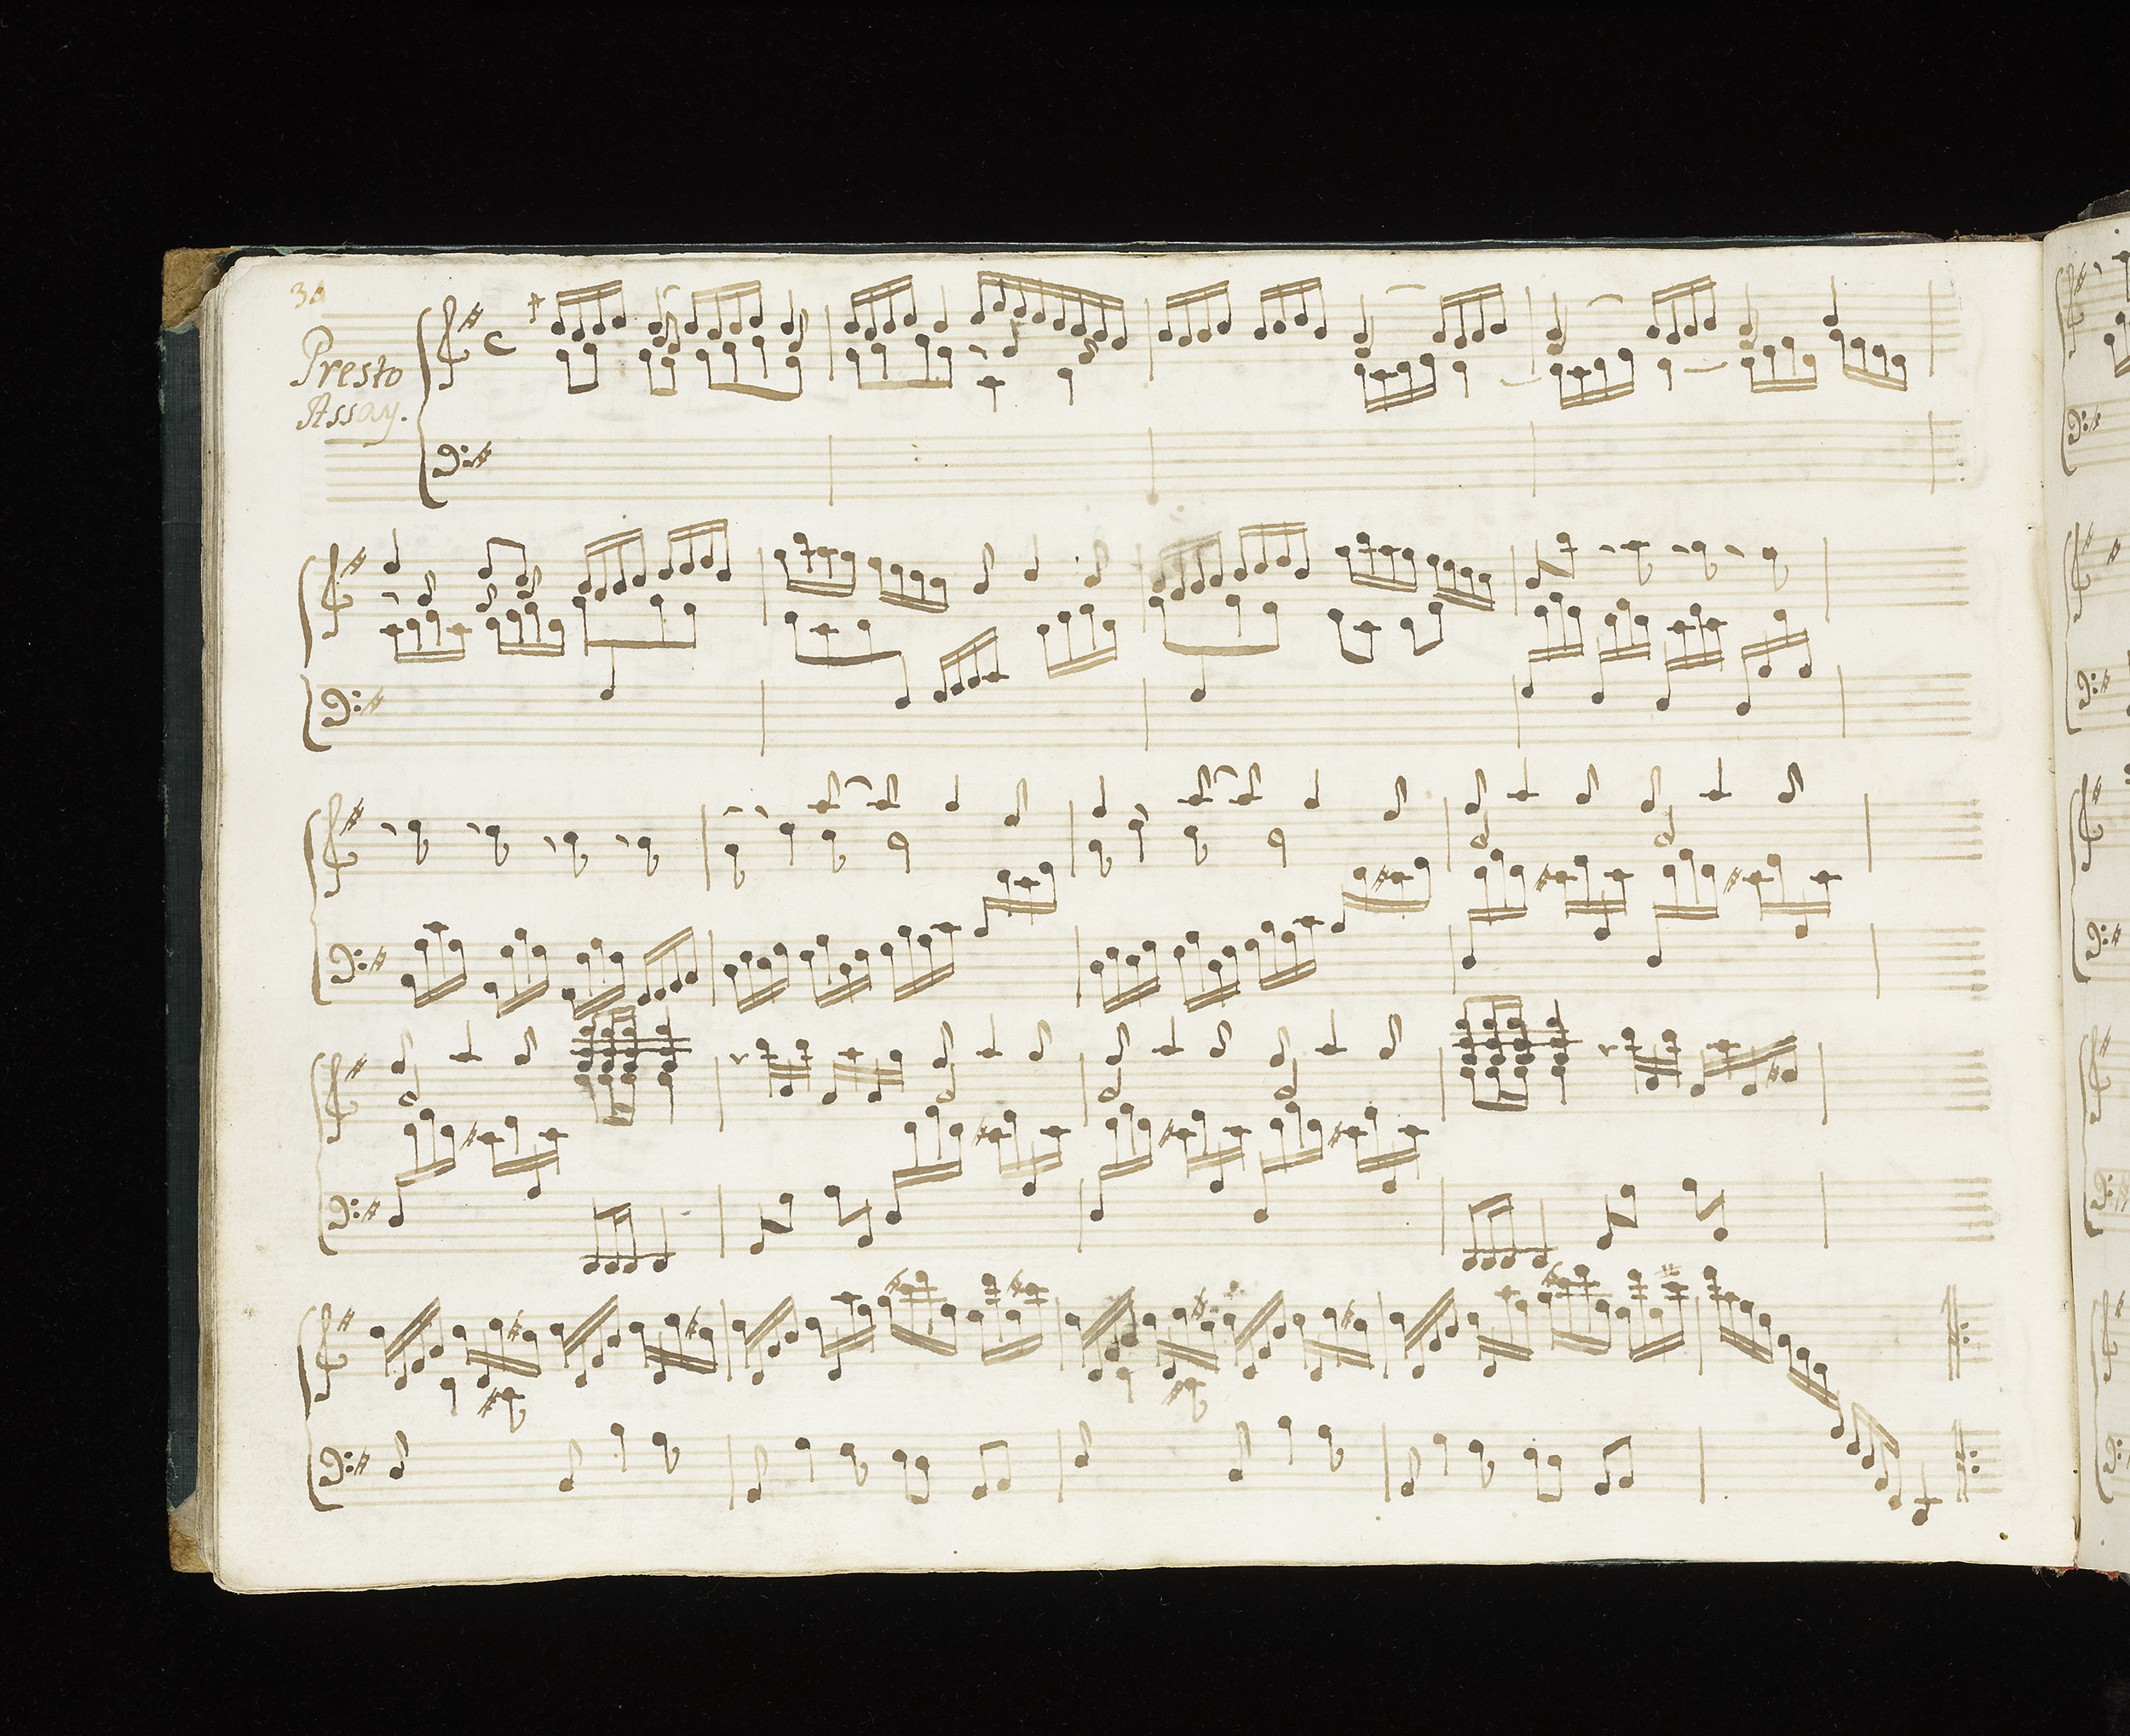 Presto
Assay.